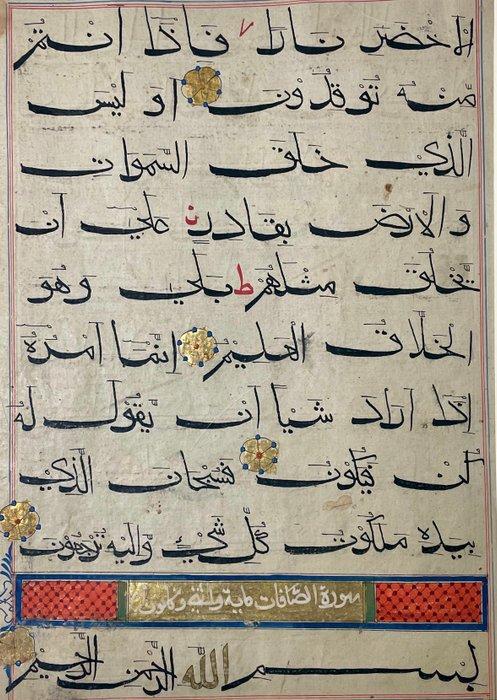 الاخضر نارا فاذا انتم
منه توقدون او ليس
الذي خلق السموات
والارض بقادر على ان
يخلق مثلهم ط بلى وهو
الخلاق العليم انما امره
اذا اراد شيا ان يقول له
كن فيكون فسبحان الذي
بيده ملكوت كل شيء واليه ترجعون
سورة الصافات ماية واثنى وثمانون
بسم الله الرحمن الرحيم